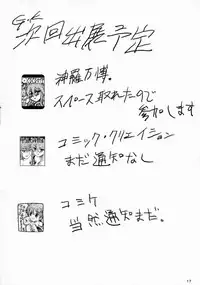 G.K
次回出展予定
神羅万博。
スペース取れたので
参加します
コミック・クリエイション
まだ通知なし
コミケ
当然通知まだ。